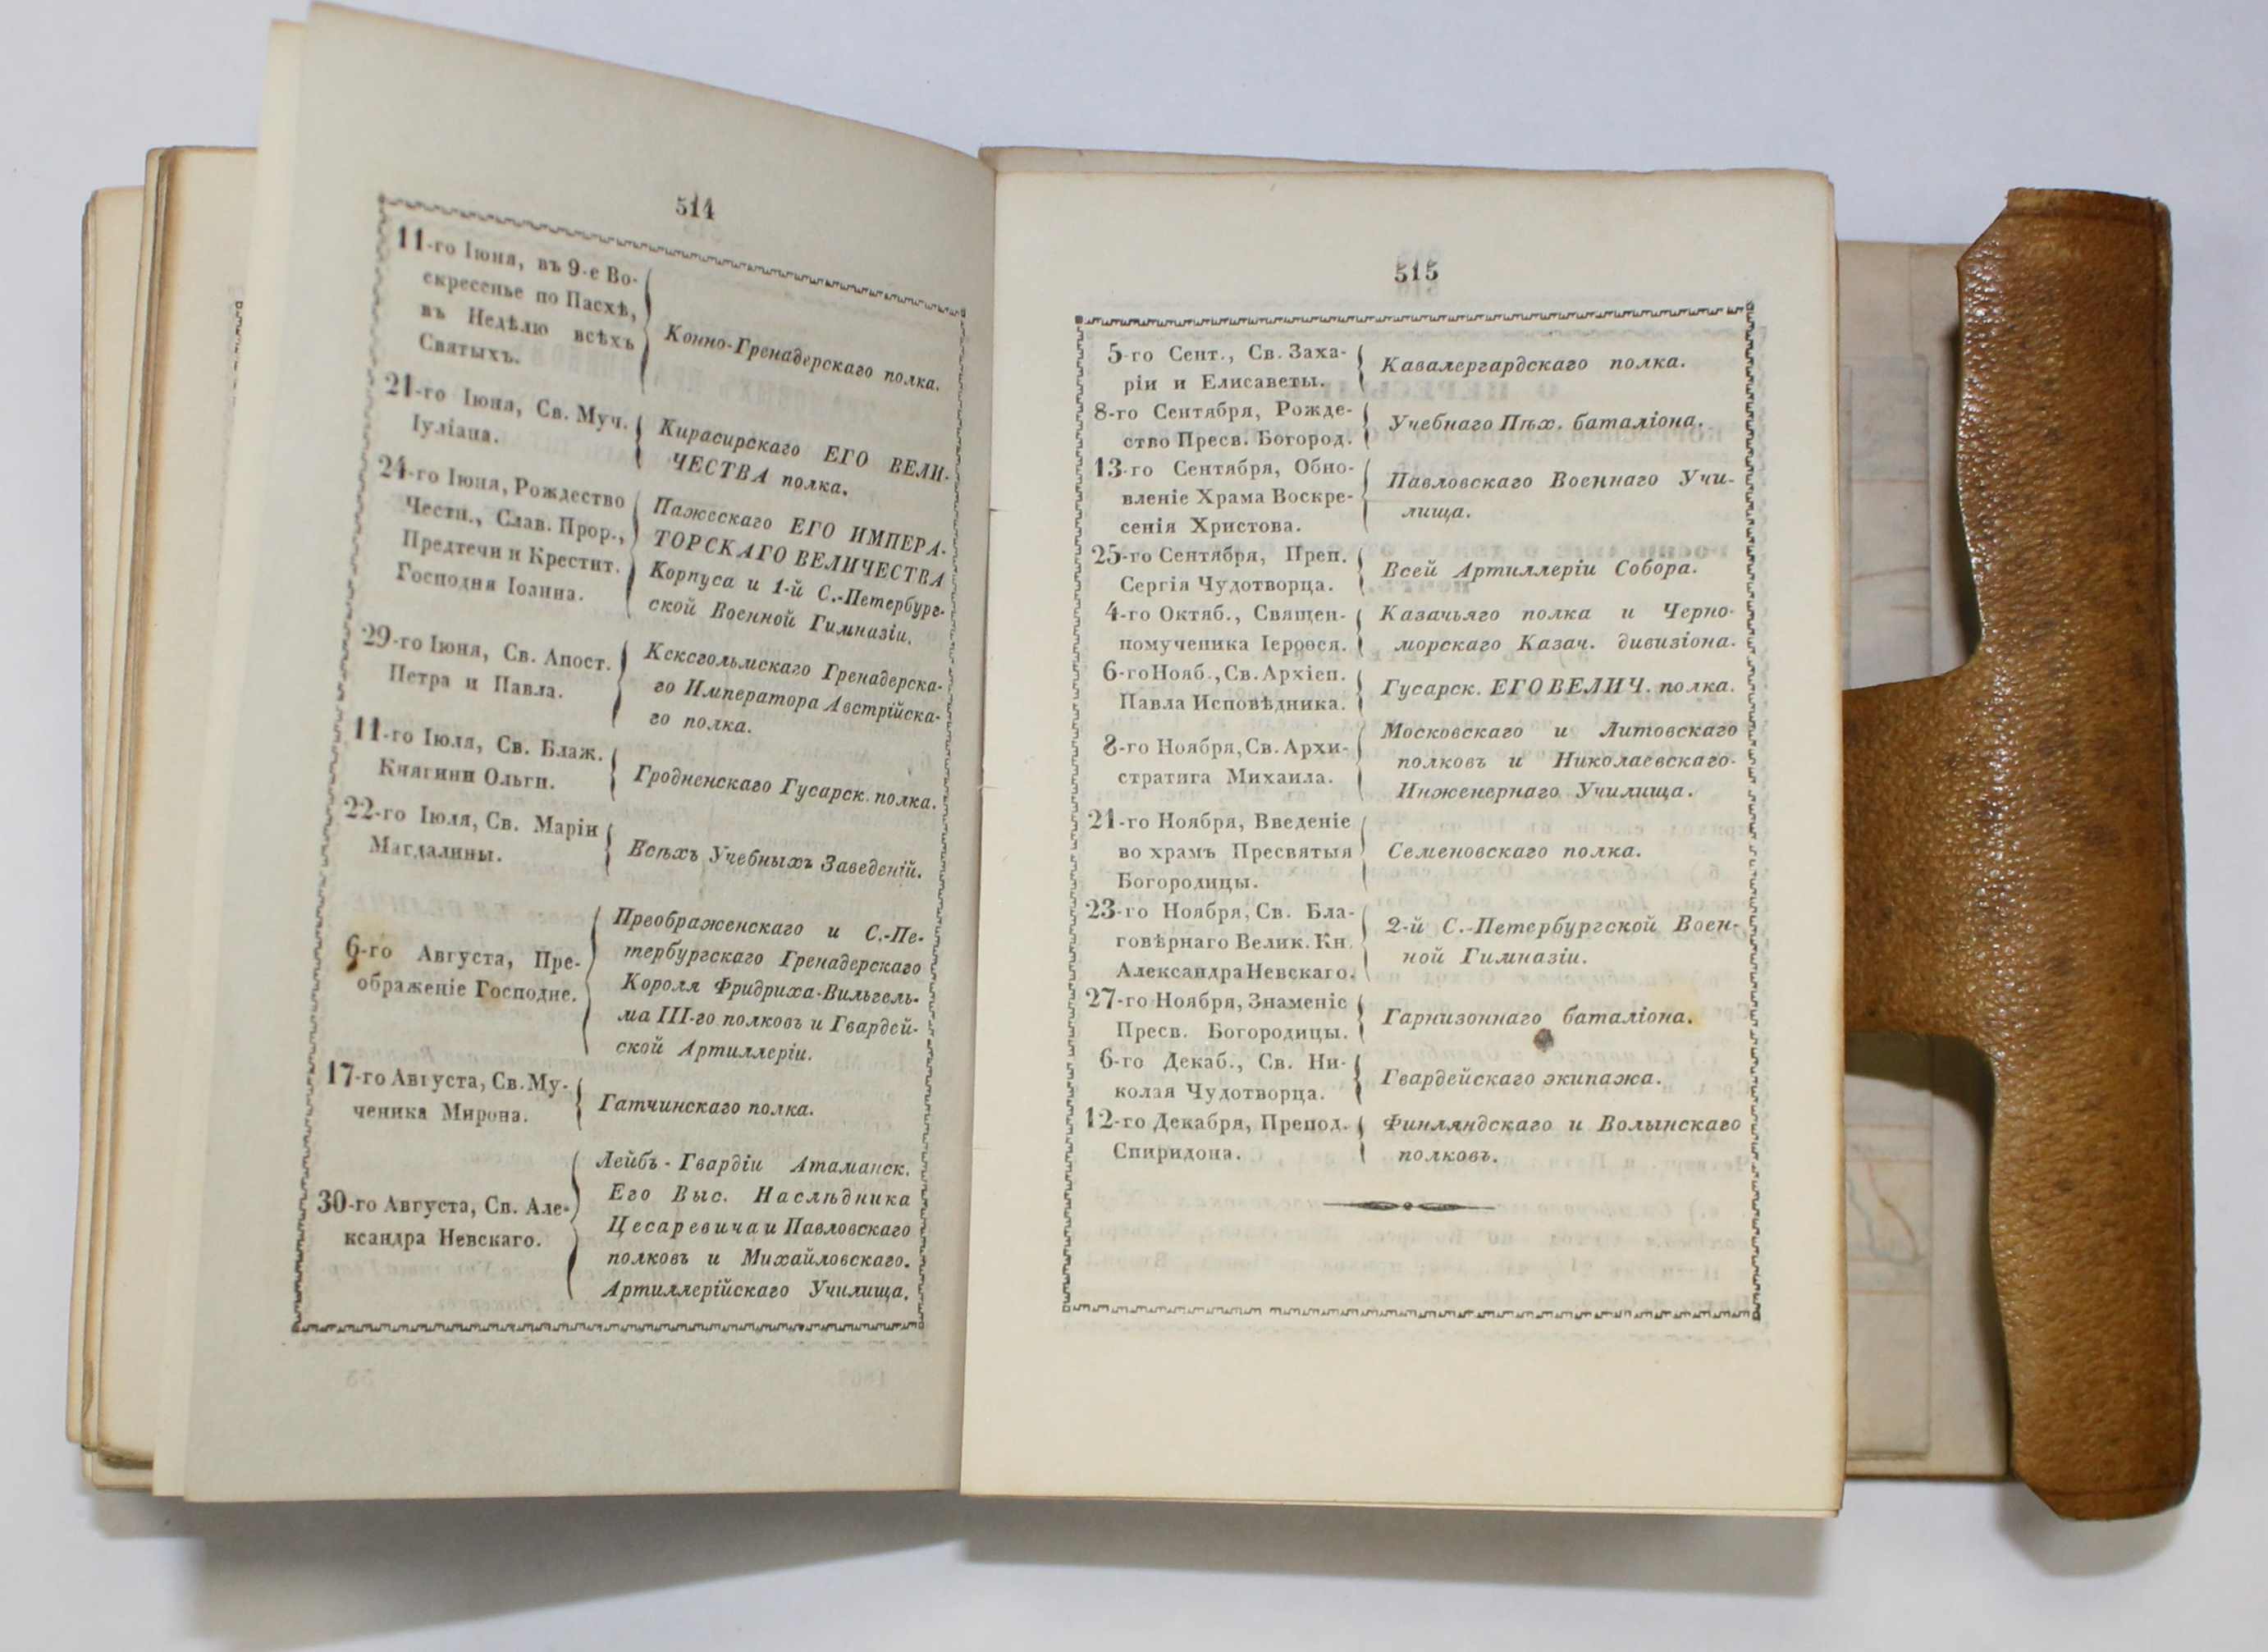 514
11-го Іюня, въ 9-е Во-
скресенье по Пасхѣ,
въ Недѣлю всѣхъ
Святыхъ.
Конно-Гренадерскаго полка.
21-го Іюня, Св. Муч.
Іуліана.
Кирасирскаго ЕГО ВЕЛИ-
ЧЕСТВА полка.
24-го Іюня, Рождество
Честн., Слав. Прор.,
Предтечи и Крестит.
Господня Іоанна.
Пажескаго ЕГО ИМПЕРА-
ТОРСКАГО ВЕЛИЧЕСТВА
Корпуса и 1-й С.-Петербург-
ской Военной Гимназіи.
29-го Іюня, Св. Апост.
Петра и Павла.
Кексгольмскаго Гренадерска-
го Императора Австрійска-
го полка.
11-го Іюля, Св. Блаж.
Княгини Ольги.
Гродненскаго Гусарск. полка.
22-го Іюля, Св. Маріи
Магдалины.
Всѣхъ Учебныхъ Заведеній.
6-го Августа, Пре-
ображеніе Господне.
Преображенскаго и С.-Пе-
тербургскаго Гренадерскаго
Короля Фридриха-Вильгель-
ма III-го полковъ и Гвардей-
ской Артиллеріи.
17-го Августа, Св. Му-
ченика Мирона.
Гатчинскаго полка.
30-го Августа, Св. Але-
ксандра Невскаго.
Лейбъ-Гвардіи Атаманск.
Его Выс. Наслѣдника
Цесаревича и Павловскаго
полковъ и Михайловскаго.
Артиллерійскаго Училища.
515
5-го Сент., Св. Заха-
ріи и Елисаветы.
Кавалергардскаго полка.
8-го Сентября, Рожде-
ство Пресв. Богород.
Учебнаго Пѣх. баталіона.
13-го Сентября, Обно-
вленіе Храма Воскре-
сенія Христова.
Павловскаго Военнаго Учи-
лища.
25-го Сентября, Преп.
Сергія Чудотворца.
Всей Артиллеріи Собора.
4-го Октяб., Священ-
номученика Іероѳея.
Казачьяго полка и Черно-
морскаго Казач. дивизіона.
6-го Нояб., Св. Архіеп.
Павла Исповѣдника.
Гусарск. ЕГО ВЕЛИЧ. полка.
8-го Ноября, Св. Архи-
стратига Михаила.
Московскаго и Литовскаго
полковъ и Николаевскаго-
Инженернаго Училища.
21-го Ноября, Введеніе
во храмъ Пресвятыя
Богородицы.
Семеновскаго полка.
23-го Ноября, Св. Бла-
говѣрнаго Велик. Кн.
Александра Невскаго.
2-й С.-Петербургской Воен-
ной Гимназіи.
27-го Ноября, Знаменіе
Пресв. Богородицы.
Гарнизоннаго баталіона.
6-го Декаб., Св. Ни-
колая Чудотворца.
Гвардейскаго экипажа.
12-го Декабря, Препод.
Спиридона.
Финляндскаго и Волынскаго
полковъ.